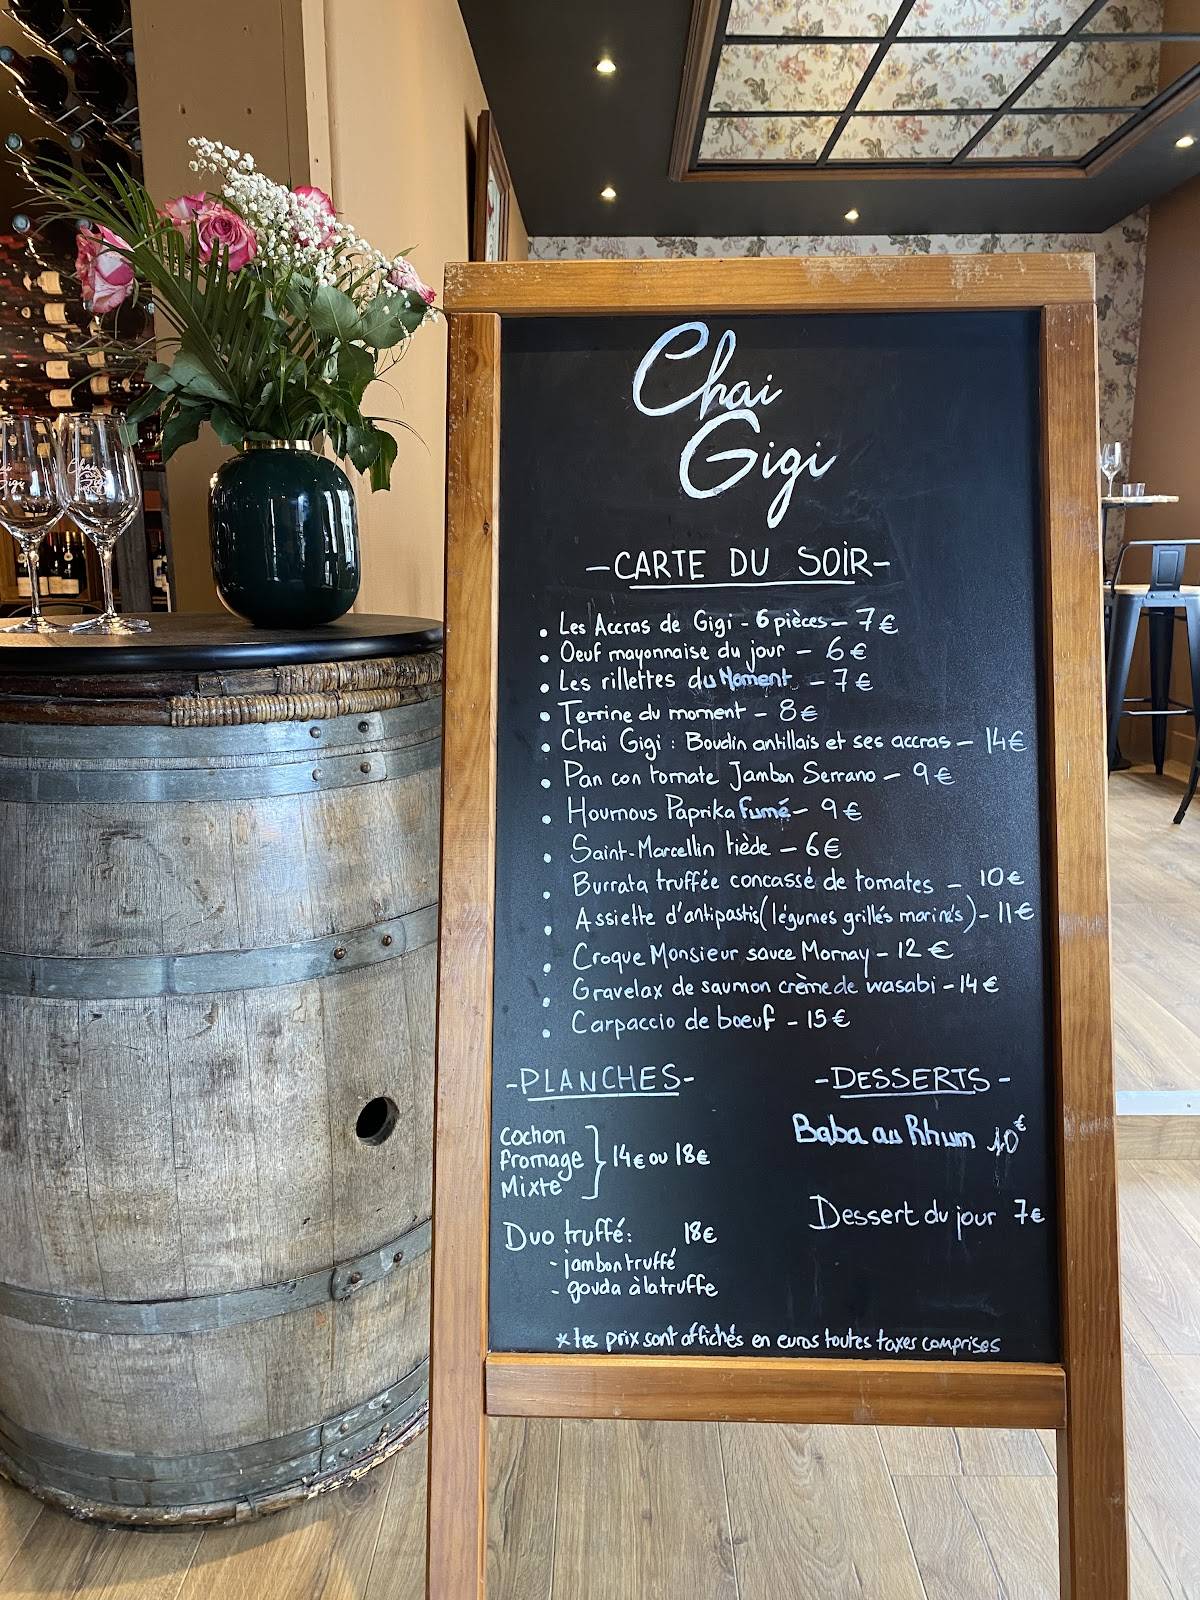 Chai
Gigi
-CARTE DU SOIR-
• Les Accras de Gigi - 6 pièces - 7€
• Oeuf mayonnaise du jour - 6€
• Les rillettes du Moment - 7€
• Terrine du moment - 8€
• Chai Gigi : Boudin antillais et ses accras - 14€
• Pan con tomate Jambon Serrano - 9€
• Houmous Paprika Fumé - 9€
• Saint-Marcellin tiède - 6€
• Burrata truffée concassé de tomates - 10€
• Assiette d'antipastis (légumes grillés marinés) - 11€
• Croque Monsieur sauce Mornay - 12€
• Gravelax de saumon crème de wasabi - 14€
• Carpaccio de boeuf - 15€
-PLANCHES-
Cochon
fromage } 14€ ou 18€
Mixte
Duo truffé: 18€
- jambon truffé
- gouda à la truffe
-DESSERTS-
Baba au Rhum 10€
Dessert du jour 7€
* les prix sont affichés en euros toutes taxes comprises
Chai
Gigi